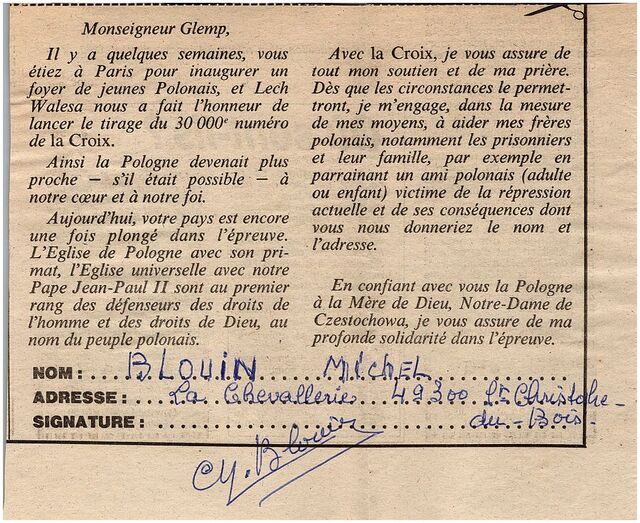 Monseigneur Glemp,
Il y a quelques semaines, vous
étiez à Paris pour inaugurer un
foyer de jeunes Polonais, et Lech
Walesa nous a fait l'honneur de
lancer le tirage du 30 000e numéro
de la Croix.
Ainsi la Pologne devenait plus
proche — s'il était possible — à
notre cœur et à notre foi.
Aujourd'hui, votre pays est encore
une fois plongé dans l'épreuve.
L'Eglise de Pologne avec son pri-
mat, l'Eglise universelle avec notre
Pape Jean-Paul II sont au premier
rang des défenseurs des droits de
l'homme et des droits de Dieu, au
nom du peuple polonais.
Avec la Croix, je vous assure de
tout mon soutien et de ma prière.
Dès que les circonstances le permet-
tront, je m'engage, dans la mesure
de mes moyens, à aider mes frères
polonais, notamment les prisonniers
et leur famille, par exemple en
parrainant un ami polonais (adulte
ou enfant) victime de la répression
actuelle et de ses conséquences dont
vous nous donneriez le nom et
l'adresse.
En confiant avec vous la Pologne
à la Mère de Dieu, Notre-Dame de
Czestochowa, je vous assure de ma
profonde solidarité dans l'épreuve.
NOM : BLOUIN MICHEL
ADRESSE : La Chevallerie 49300 St Christophe-
SIGNATURE : du-Bois-
M. Blouin